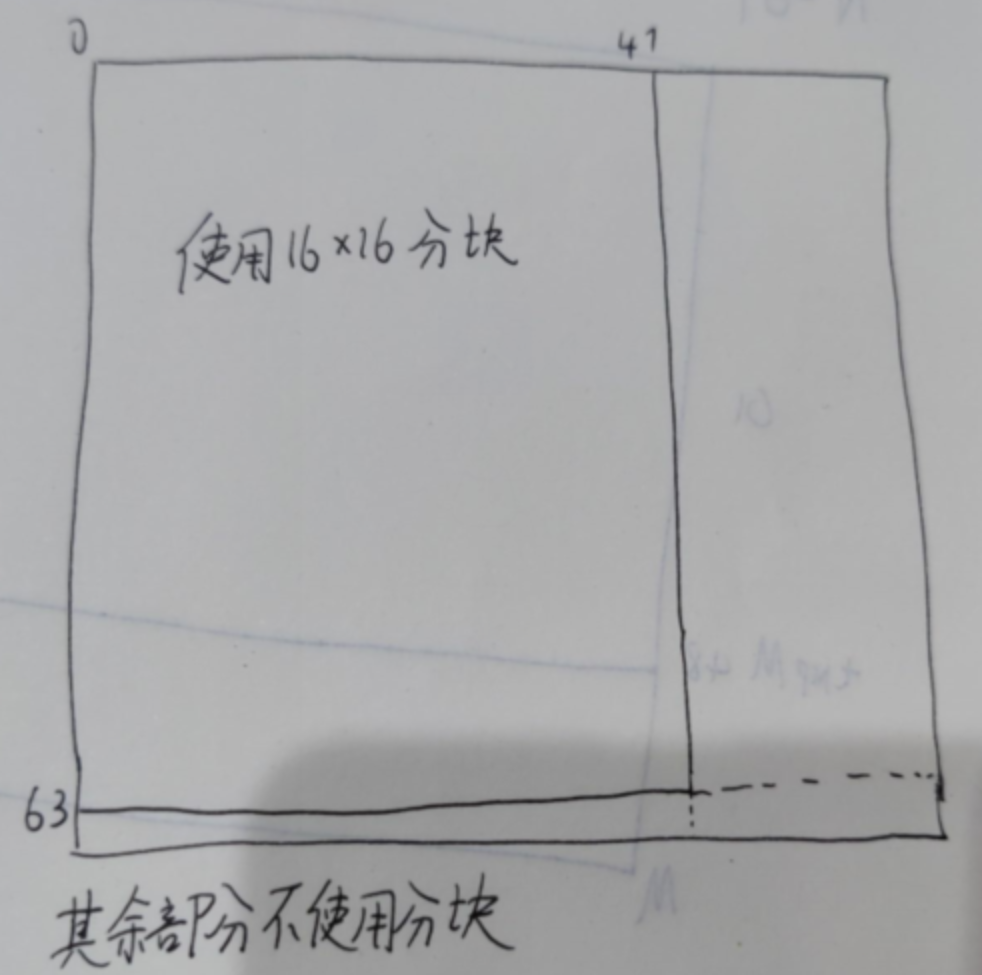 0 41
使用16×16分块
63
其余部分不使用分块